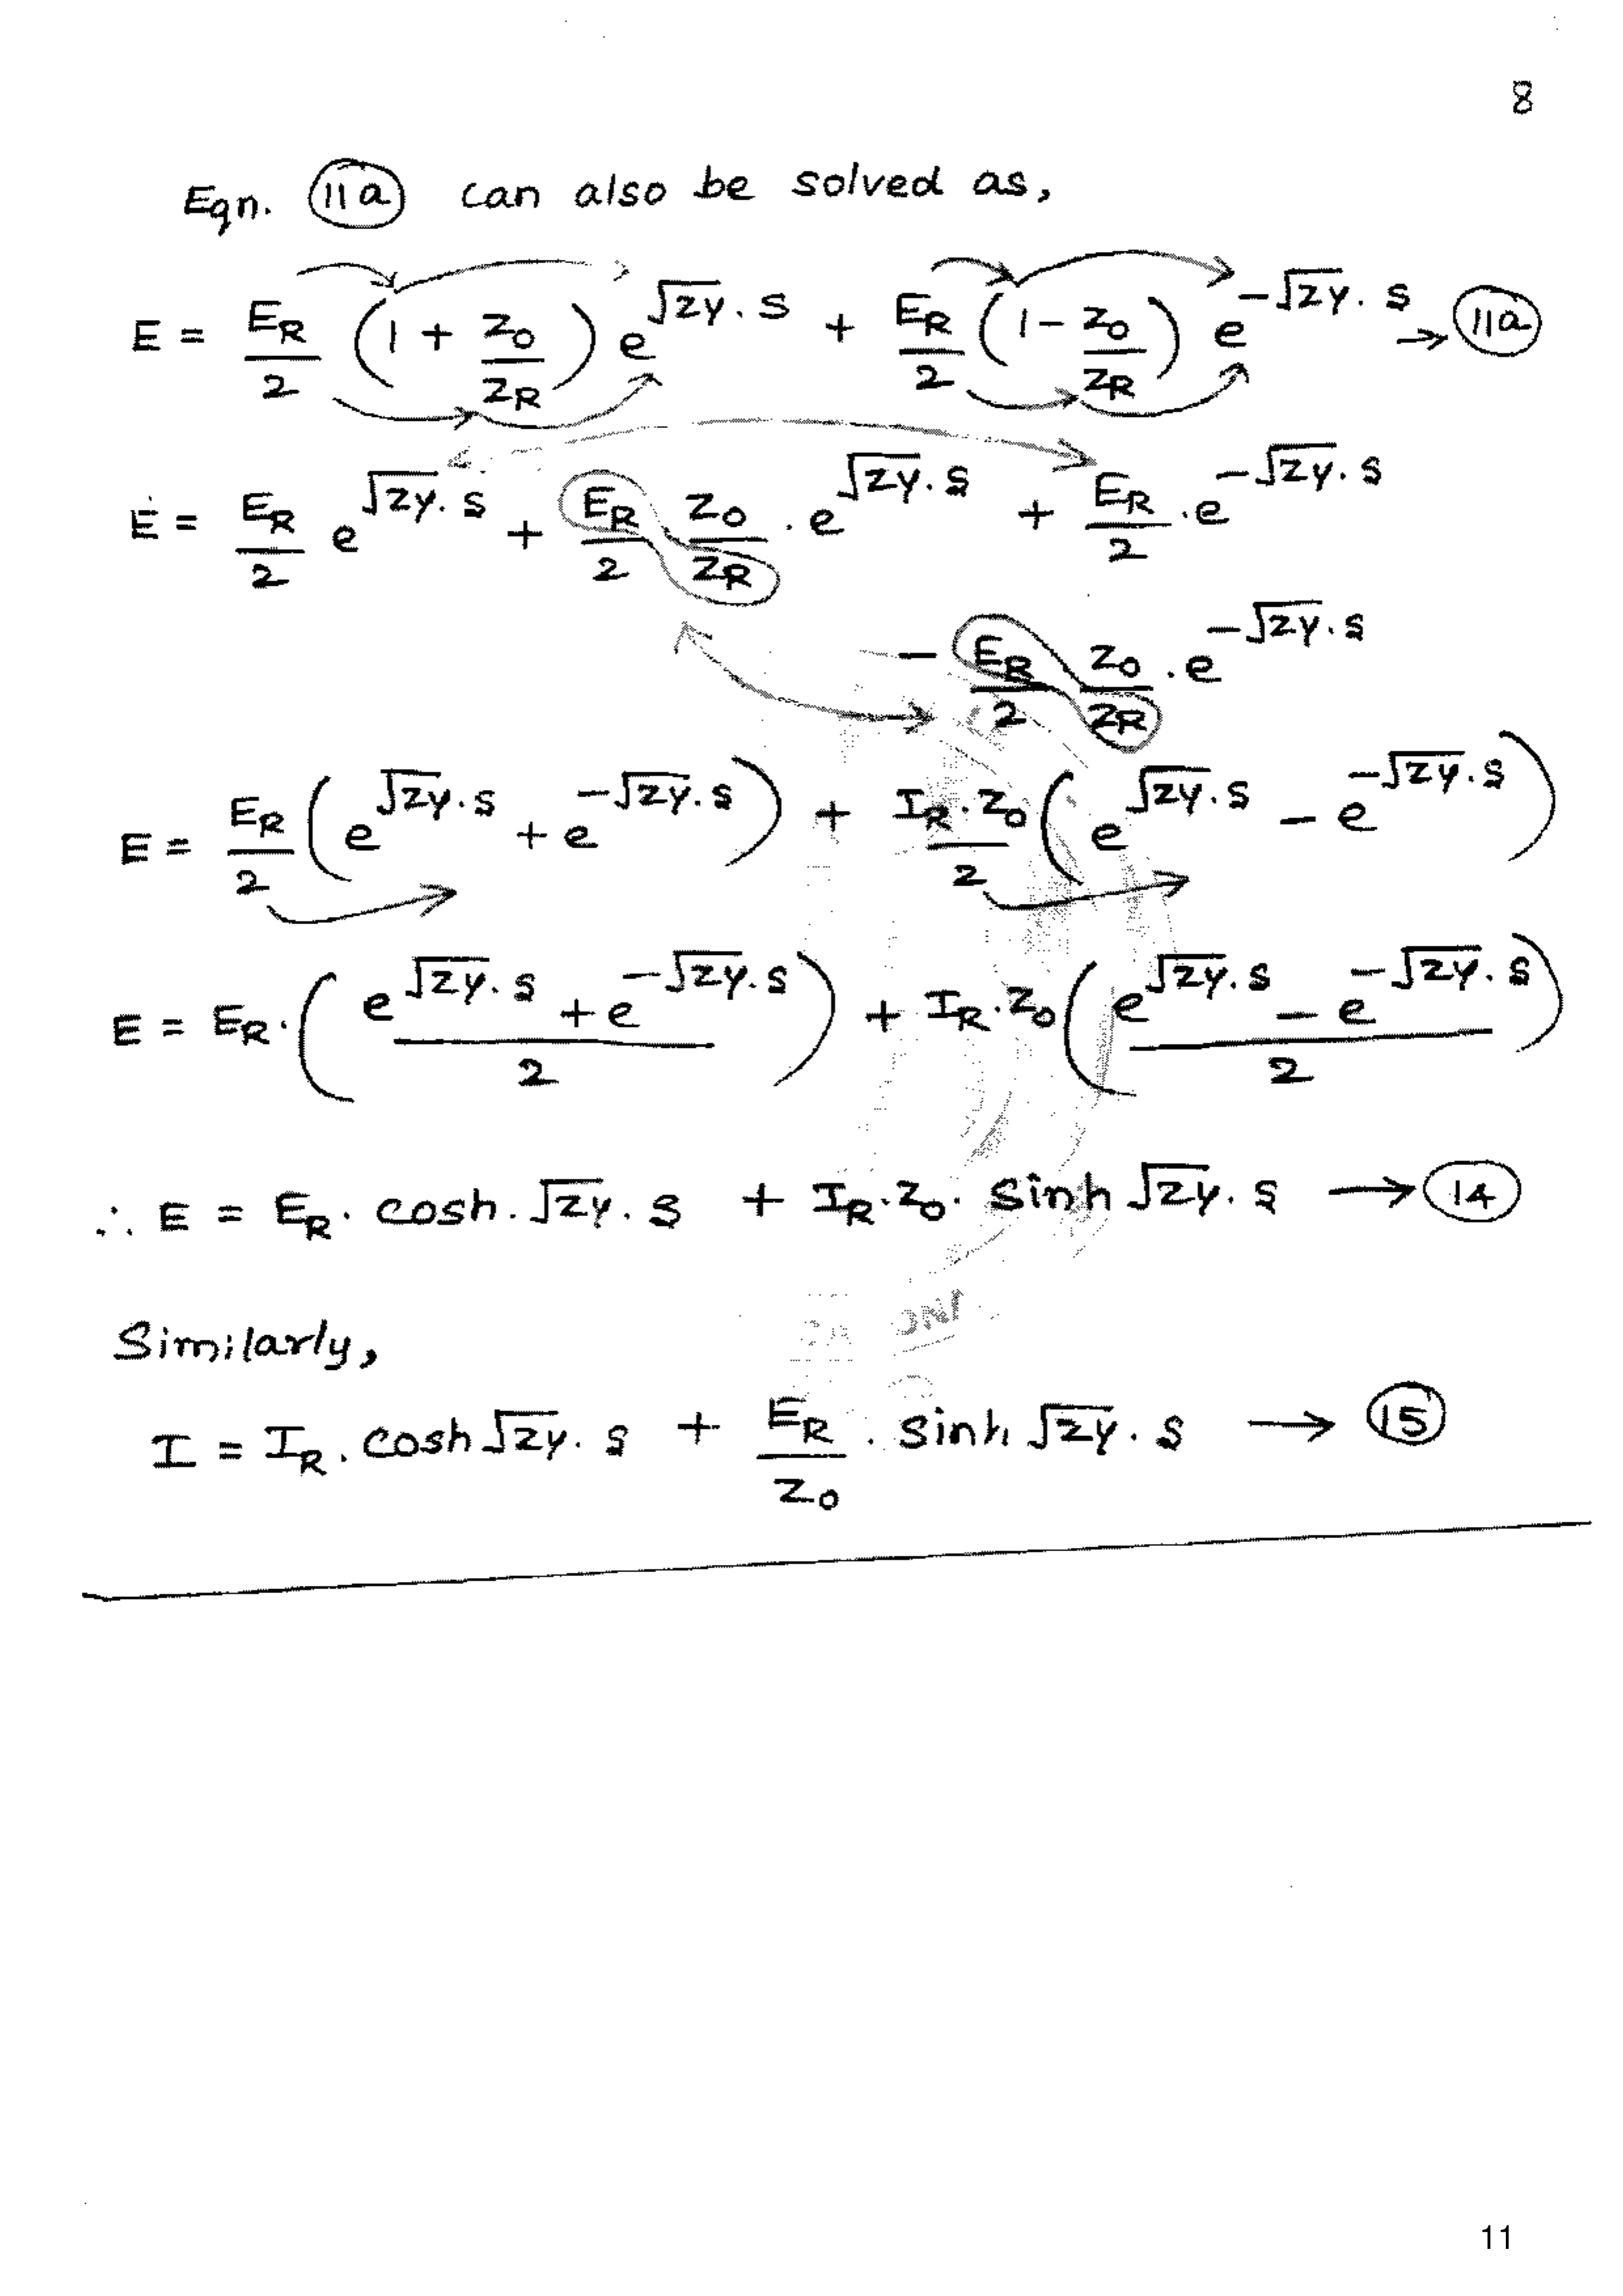 8
Eqn. (11a) can also be solved as,
E = E_R/2 (1 + Z_0/Z_R) e^{√ZY . s} + E_R/2 (1 - Z_0/Z_R) e^{-√ZY . s} → (11a)
E = E_R/2 e^{√ZY . s} + E_R/2 Z_0/Z_R . e^{√ZY . s} + E_R/2 . e^{-√ZY . s}
- E_R/2 Z_0/Z_R . e^{-√ZY . s}
E = E_R/2 (e^{√ZY . s} + e^{-√ZY . s}) + I_R . Z_0/2 (e^{√ZY . s} - e^{-√ZY . s})
E = E_R . ((e^{√ZY . s} + e^{-√ZY . s})/2) + I_R . Z_0 ((e^{√ZY . s} - e^{-√ZY . s})/2)
∴ E = E_R . cosh . √ZY . s + I_R . Z_0 . Sinh √ZY . s → (14)
Similarly,
I = I_R . cosh √ZY . s + E_R/Z_0 . Sinh √ZY . s → (15)
11